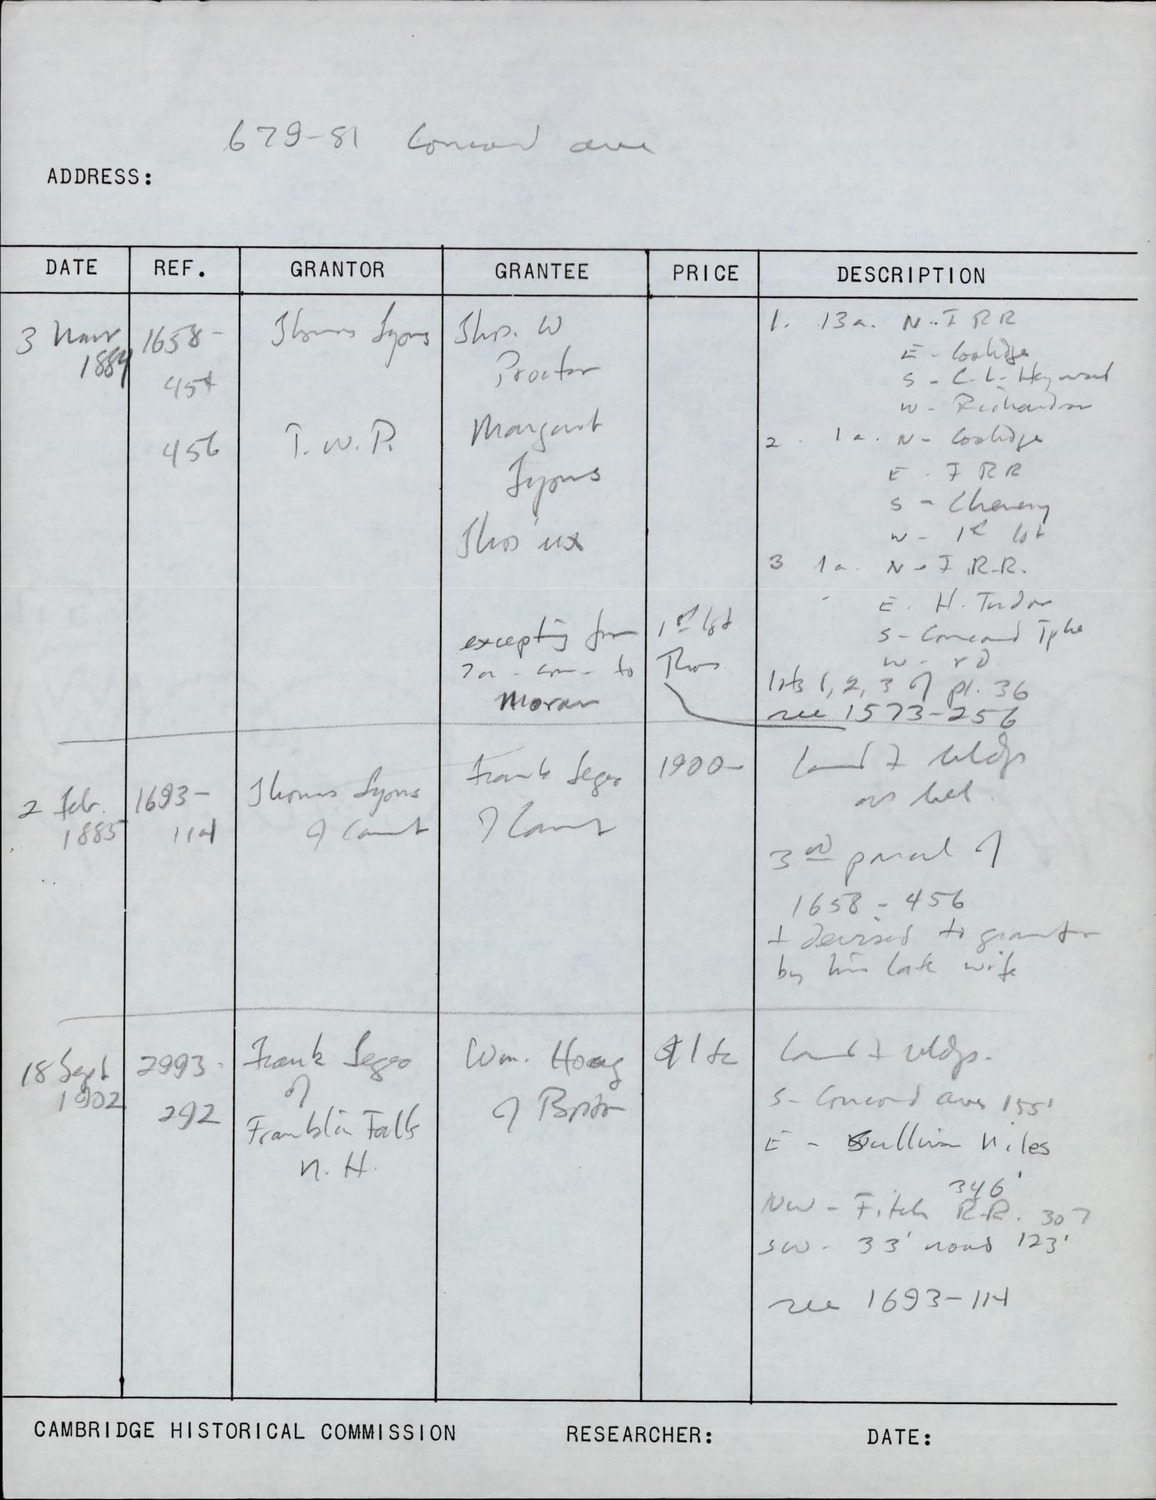 679-81 Concord ave
ADDRESS:
DATE REF. GRANTOR GRANTEE PRICE DESCRIPTION
3 1884
1658-
454
Thomas Lyons
Thos. W
Proctor
1. 13a. N-F RR
E - Coolidge
S - C. L. Heyward
W - Richardson
456
T. W. P.
Margaret
Lyons
Thos' ux
2. 1a. N- Coolidge
E - F RR
S - Cheney
W - 1st lot
3 1a. N - F R.R.
E. H. Tudor
S - Concord Tpke
W - rd
excepting from
to
Moran
1st lot
Thos
lots 1, 2, 3 of pl. 36
see 1573-256
2 Feb.
1885
1693-
114
Thomas Lyons
of Camb
Frank Sego
of Camb
1900-
Land & bldgs
3rd parcel of
1658-456
+ devised to grantor
by his late wife
18 Sept
1902
2993-
292
Frank Sego
of
Franklin Falls
N. H.
Wm. Hoag
of Boston
$1 &c
Land & bldgs.
S- Concord ave 155'
E - Sullivan Niles
346'
NW - Fitch R.R. 307
SW - 33' road 123'
see 1693-114
CAMBRIDGE HISTORICAL COMMISSION RESEARCHER: DATE: